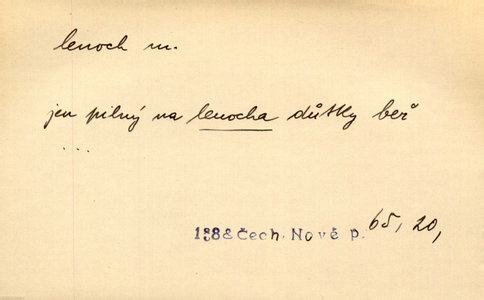 lenoch m.
jen pilný na lenocha důtky beř
...
1888 Čech. Nové p. 65, 20,